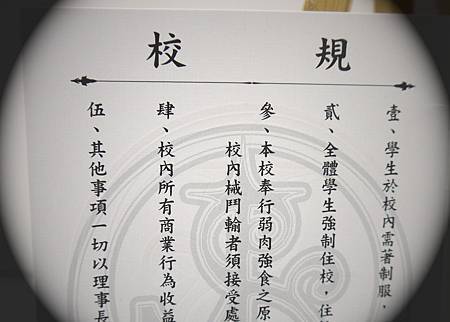 校規
壹、學生於校內需著制服，
貳、全體學生強制住校，住
參、本校奉行弱肉強食之原
校內械鬥輸者須接受處
肆、校內所有商業行為收益
伍、其他事項一切以理事長